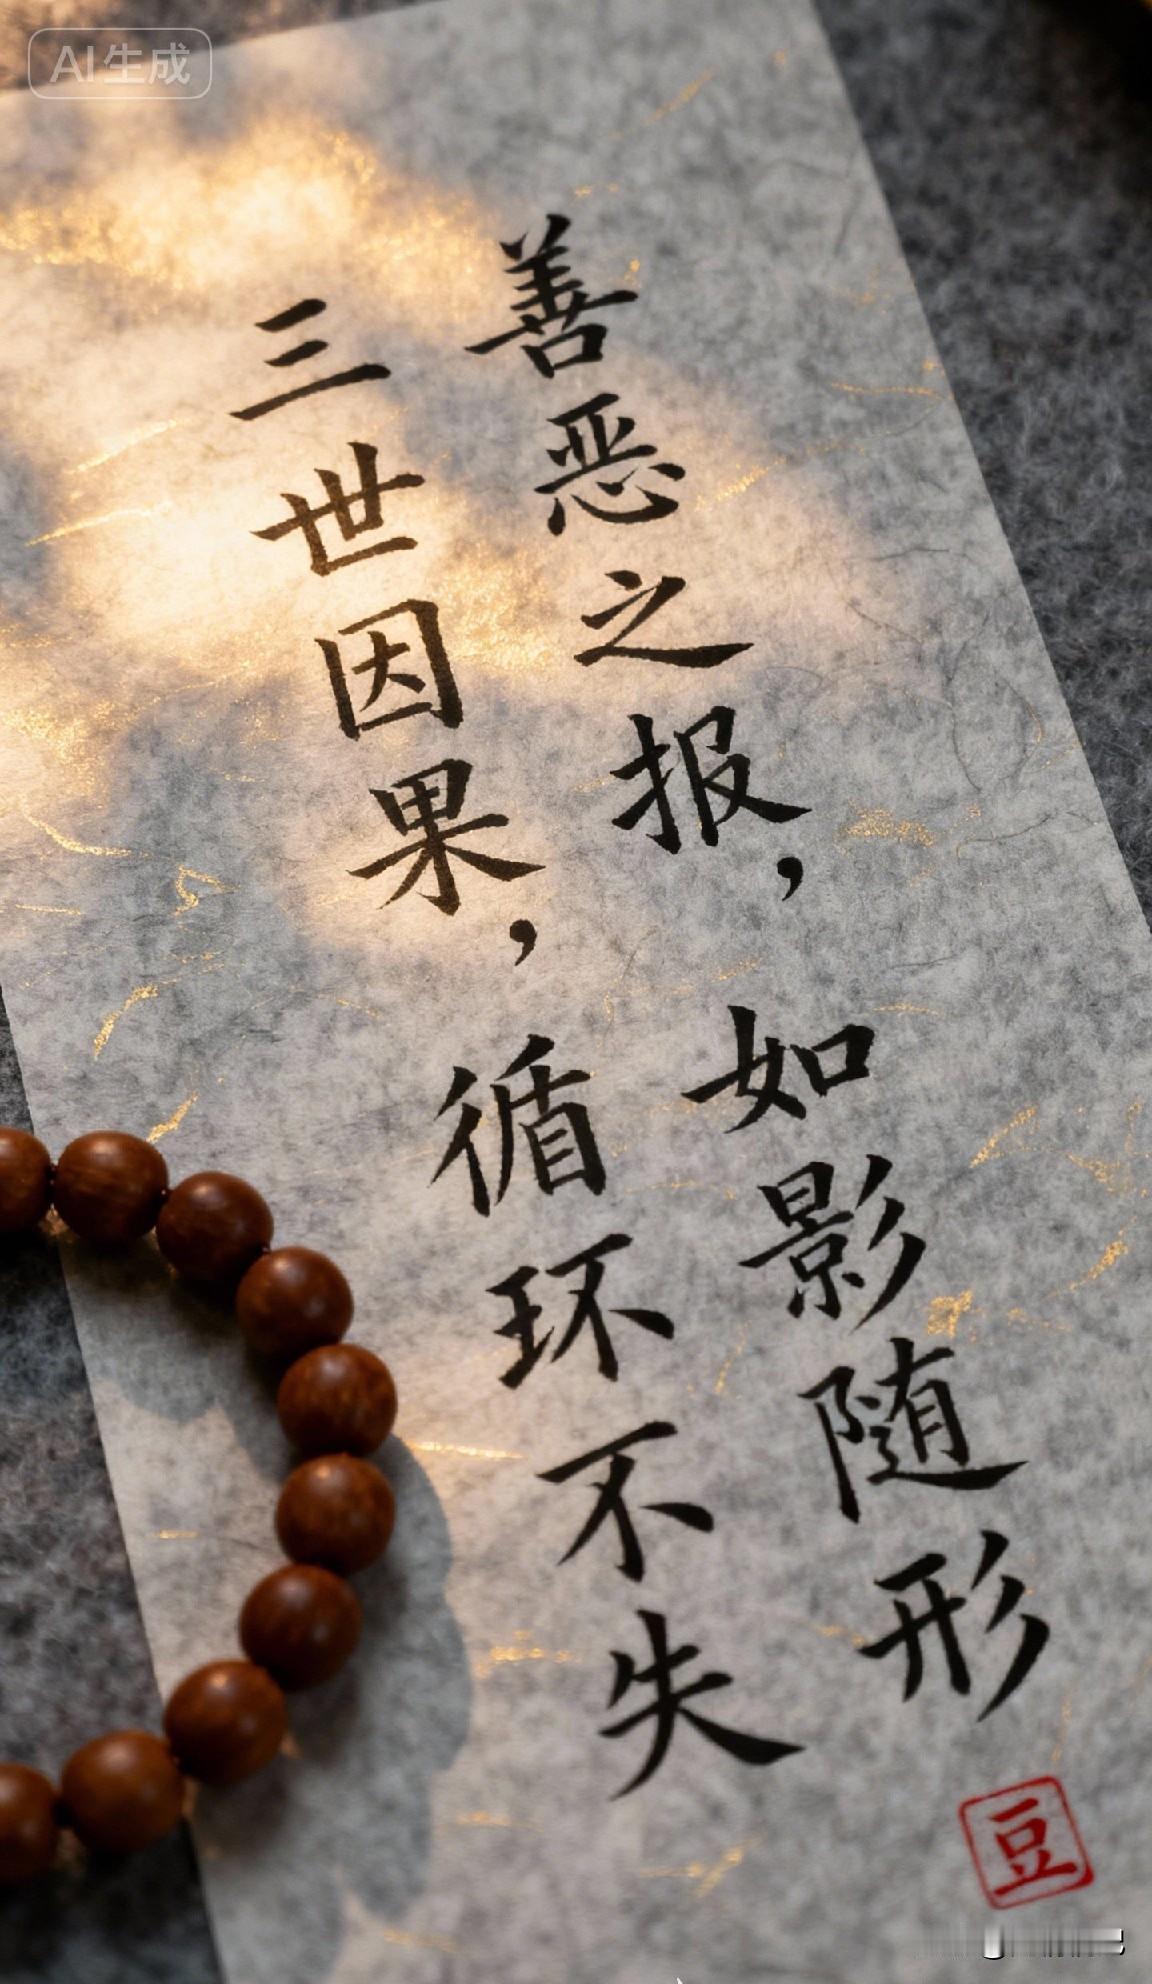 AI生成
善恶之报，如影随形
三世因果，循环不失
豆